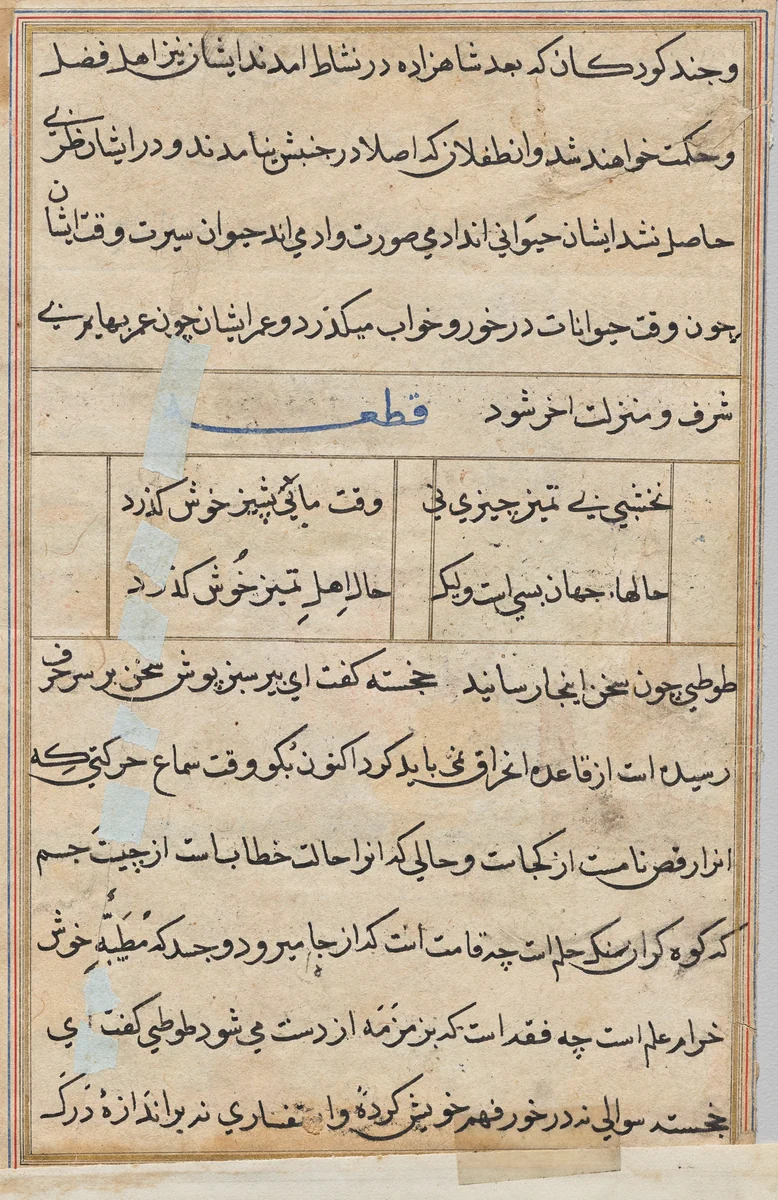 و جند کودکان که بعد شاهزاده در نشاط امدند ایشان نیز اهل فضل
و حکمت خواهند شد وان طفلان که اصلا در جنبش نیامدند و در ایشان طربی
حاصل نشد ایشان حیوانی اند ادمی صورت وادمی اند حیوان سیرت وقت ایشان
چون وقت حیوانات در خور و خواب میکذرد و عمر ایشان چون عمر بهایم بی
شرف و منزلت اخر شود قطعه
نخشبی بی تمیز چیزی نی وقت با تمیز خوش کذرد
حالهاء جهان بسی است ولیک حال اهلِ تمیز خُوش کذرد
طوطی چون سخن اینجا رسانید خجسته کفت ای پیر سبز پوش سخن بر سر حرف
رسیده است از قاعده انحراق نمی باید کرد اکنون بکو وقت سماع حرکتی که
انرا رقص نامست از کجاست و حالی که انرا حالت خطاب است از چیست جسم
که کوه کران سنک حلم است چه قامت است که از جا میرود و جسد که خوش
خرام علم است چه فقد است که بزمزمَه از دست می شود طوطی کفت ای
خجسته سوالی نه در خور فهم خویش کردهٔ و استفساری نه بر اندازهٔ دَرک